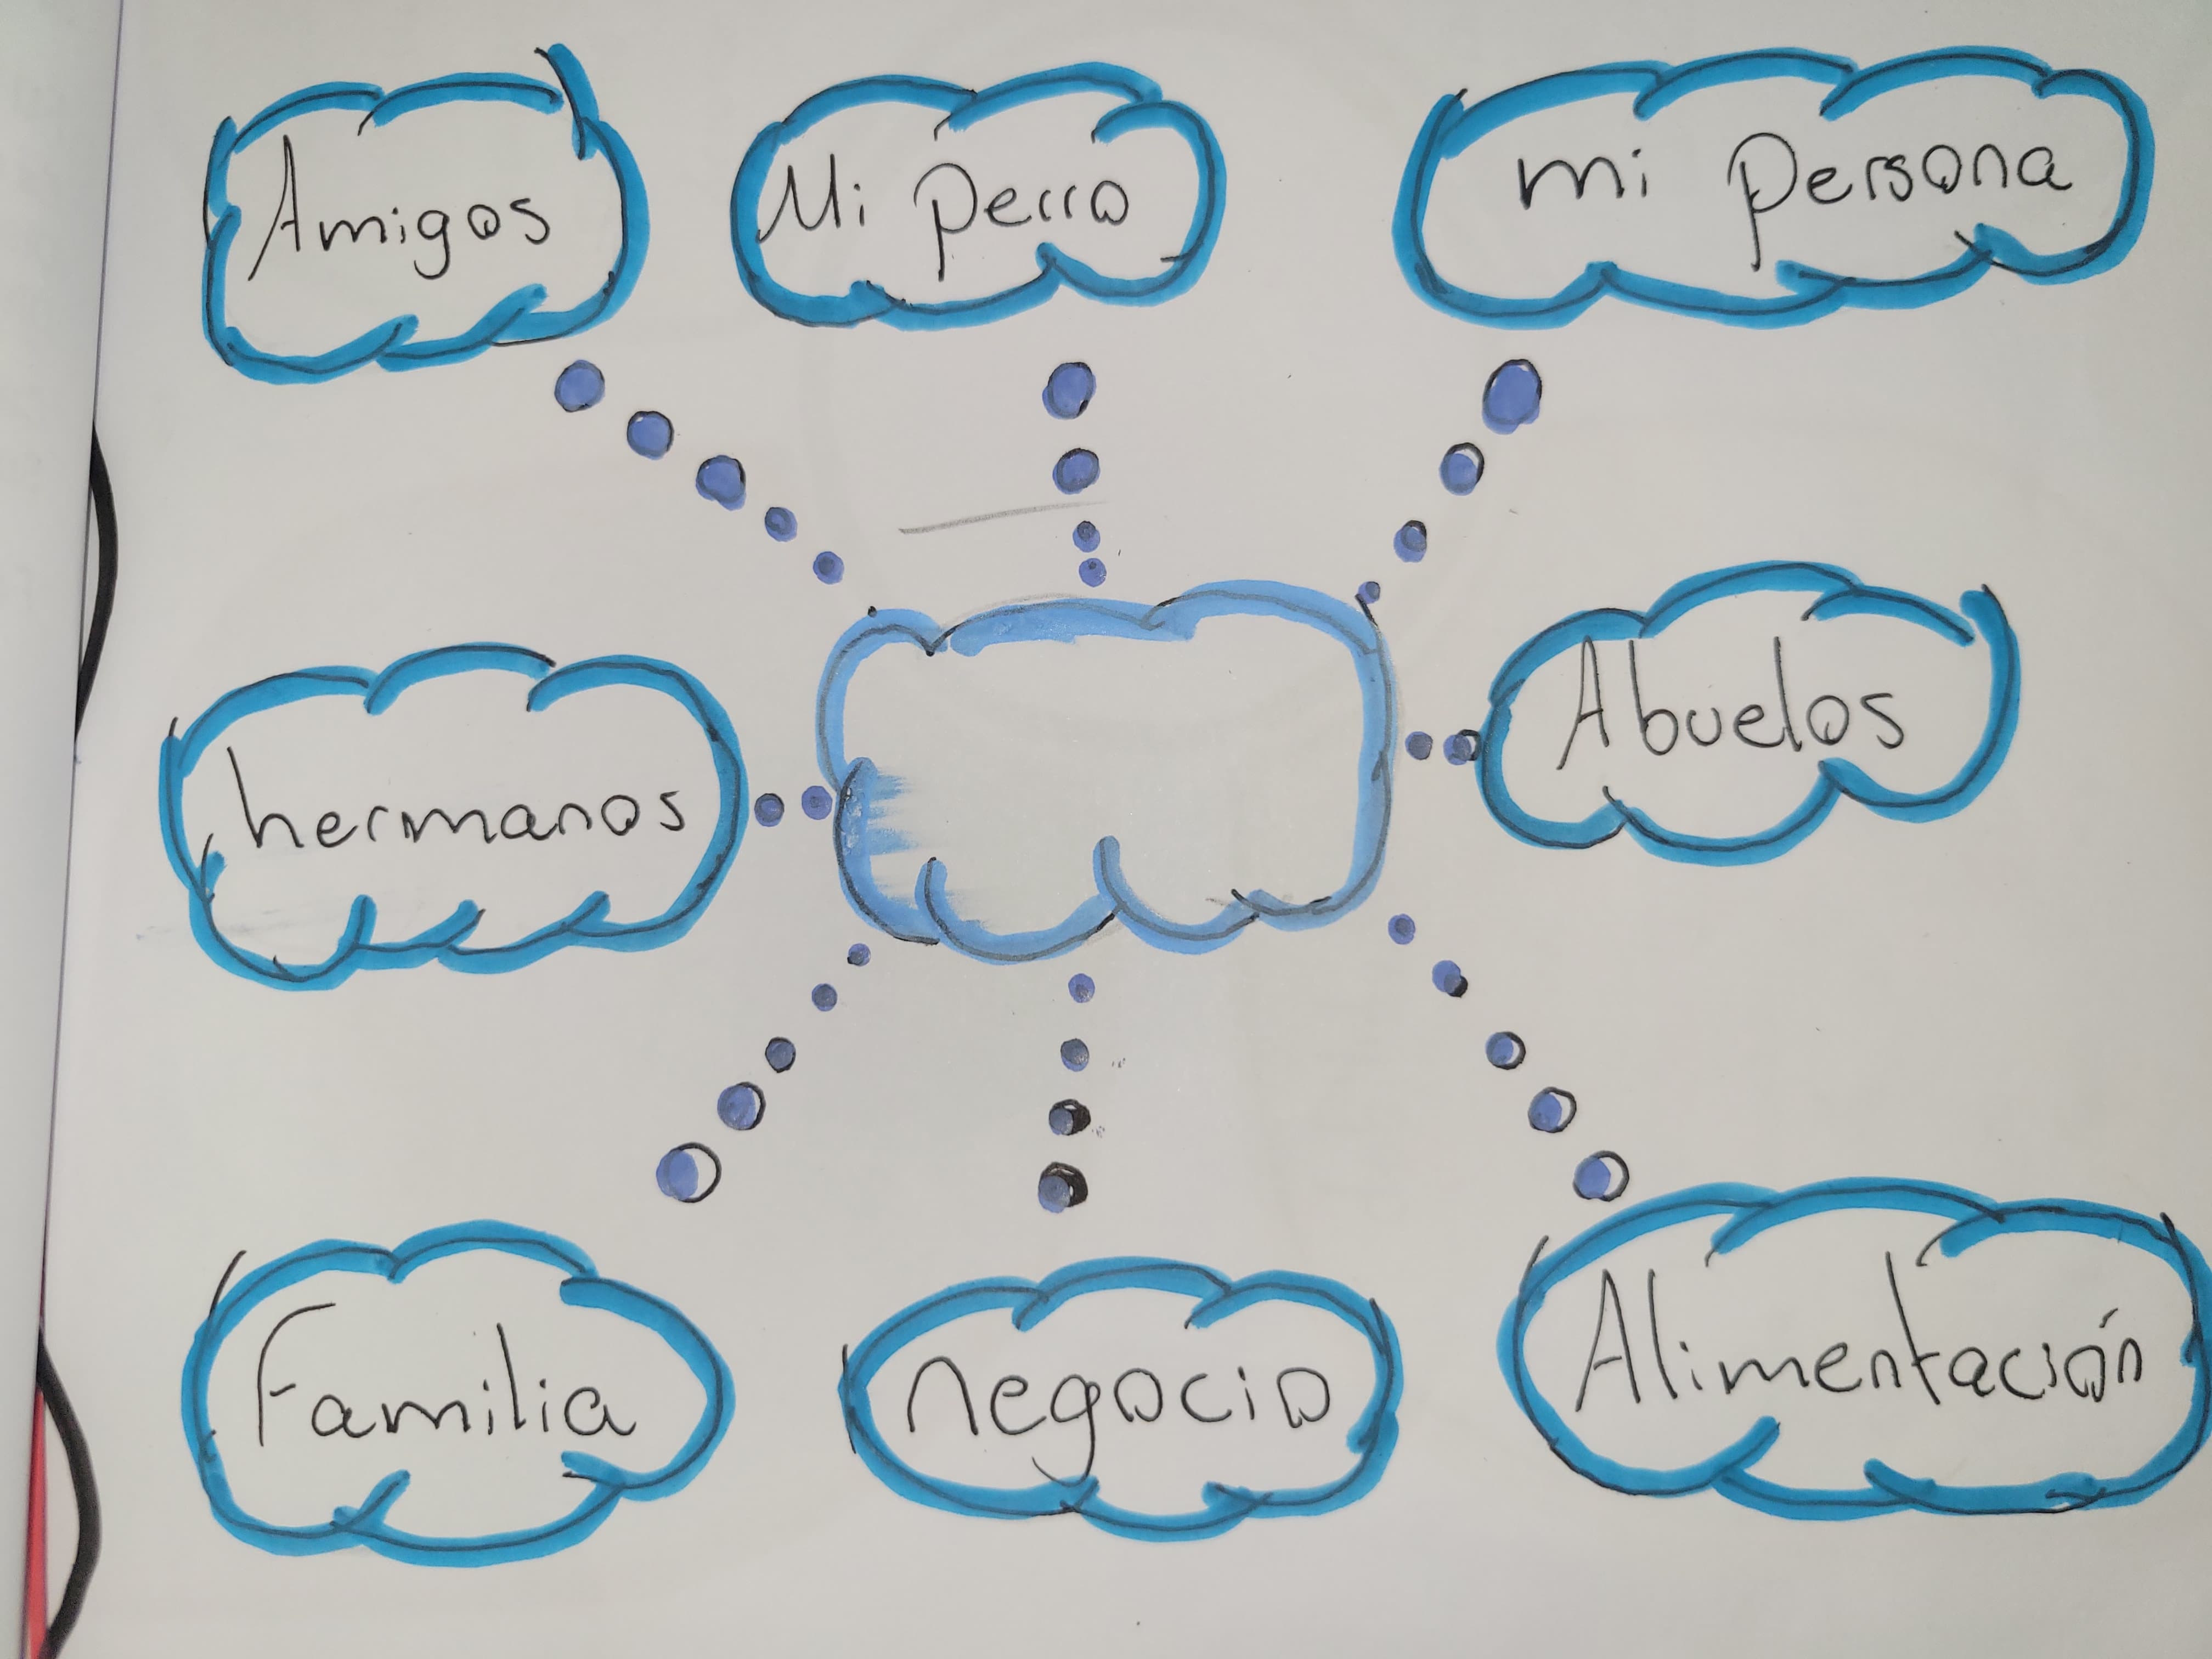 Amigos
Mi perro
mi persona
hermanos
Abuelos
Familia
negocio
Alimentación